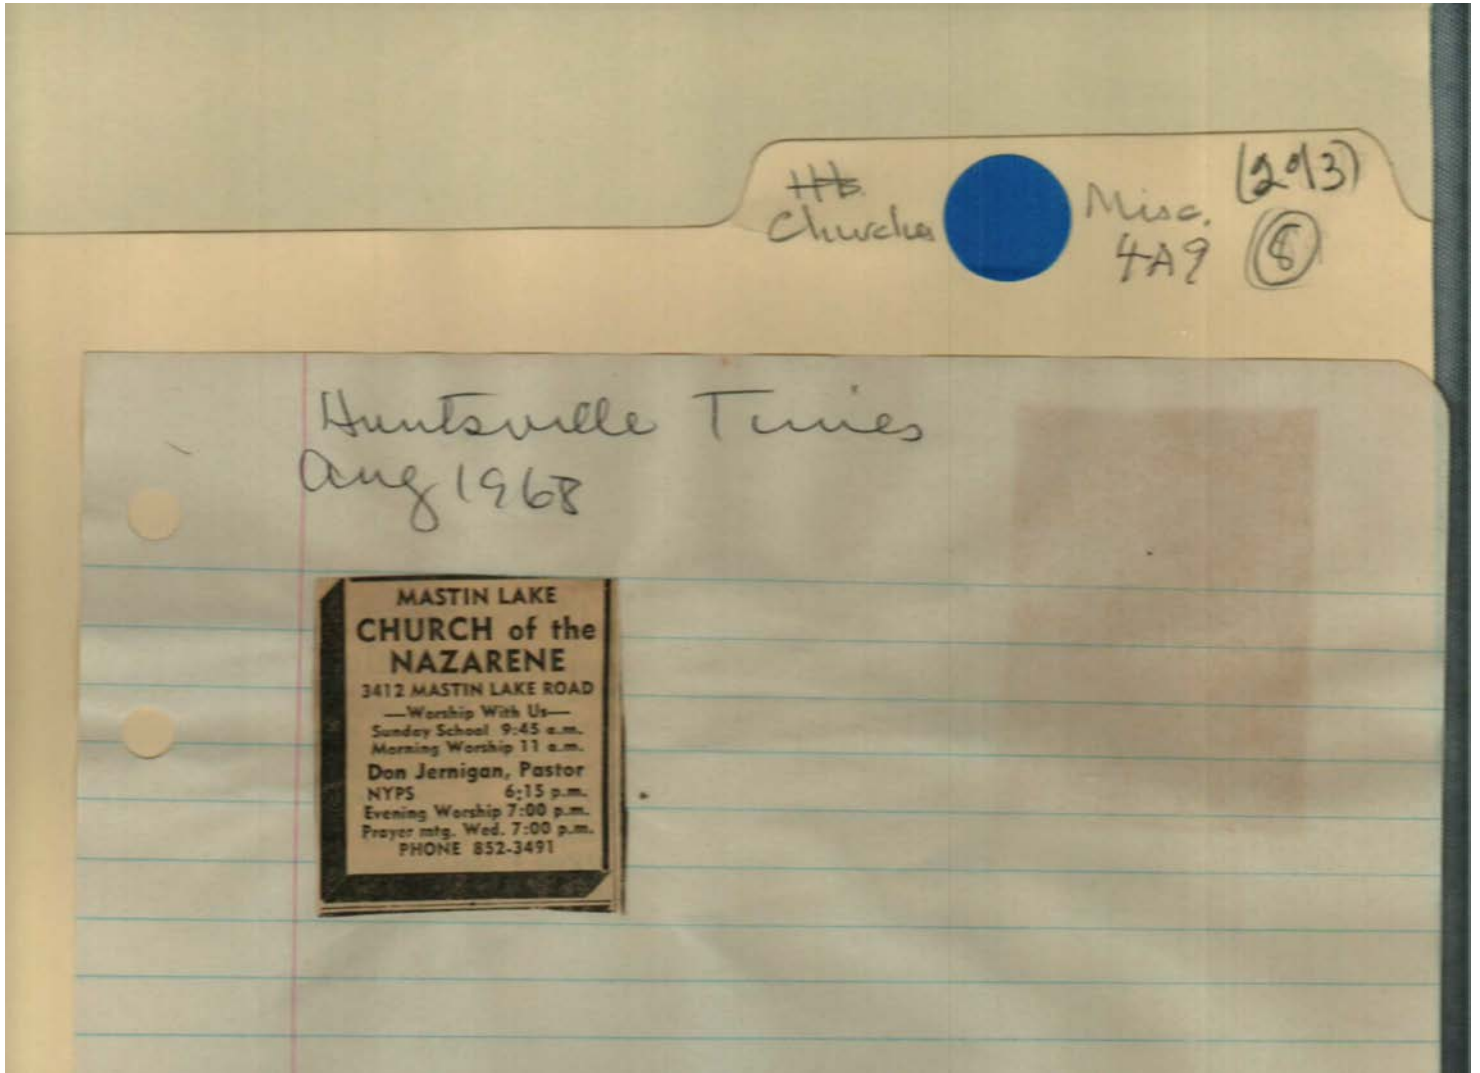 Churches
Misc. (2 of 3)
4A9 8
Huntsville Times
Aug 1968
MASTIN LAKE
CHURCH of the
NAZARENE
3412 MASTIN LAKE ROAD
—Worship With Us—
Sunday School 9:45 a.m.
Morning Worship 11 a.m.
Don Jernigan, Pastor
NYPS 6:15 p.m.
Evening Worship 7:00 p.m.
Prayer mtg. Wed. 7:00 p.m.
PHONE 852-3491